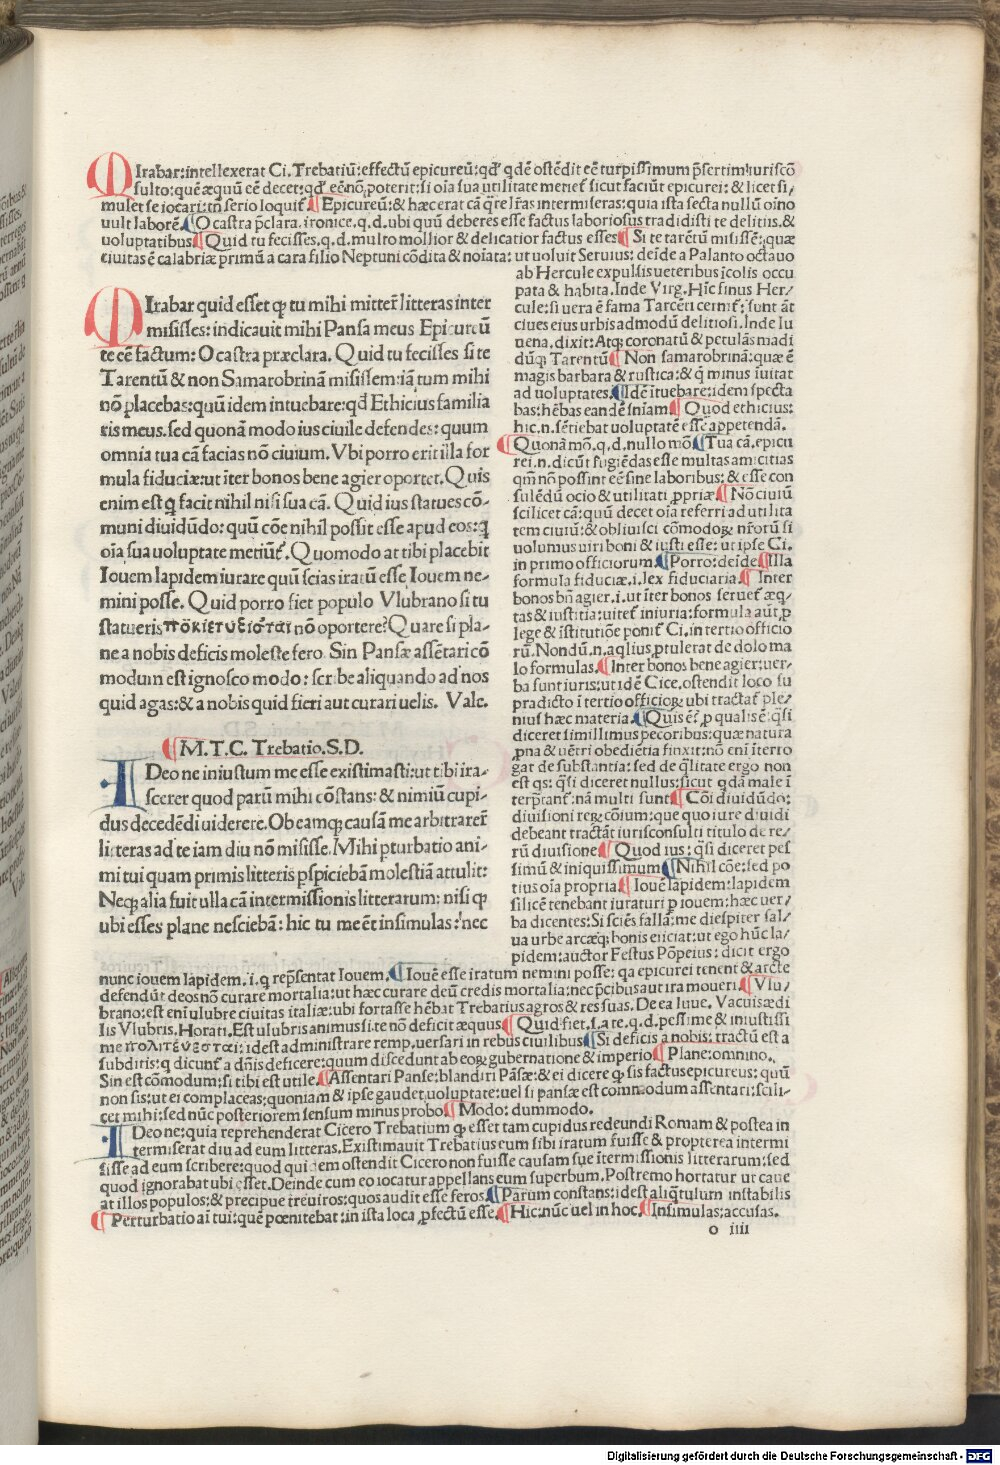 MIrabar: intellexerat Ci. Trebatiū: effectū epicureū: qđ qdē ostēdit eē turpissimum p̄sertim iuriscō
sulto: quē æquū eē decet: qđ eē nō poterit: si oīa sua utilitate metieť sicut faciūt epicurei: & licet si/
mulet se iocari: tn̄ serio loquiť. ¶Epicureū: & hæc erat cā q̄re lr̄as intermiseras: quia ista secta nullū oīno
uult laborē. ¶O castra p̄clara. ironice. q.d. ubi quū deberes esse factus laboriosus tradidisti te delitiis. &
uoluptatibus. ¶Quid tu fecisses. q.d. multo mollior & delicatior factus esses ¶Si te tarētū misissē: quæ
ciuitas ē calabriæ primū a cara filio Neptuni cōdita & noīata: ut uoluit Seruius: deīde a Palanto octauo
ab Hercule expulsis ueteribus īcolis occu
pata & habita. Inde Virg. Hīc sinus Her/
cule: si uera ē fama Tarcēti cerniť: sunt āt
ciues eius urbis admodū delitiosi. Inde Iu
uena. dixit: Atq; coronatū & petulās madi
dūq; Tarentū ¶Non samarobrinā: quæ ē
magis barbara & rustica: & q̄ minus īuitat
ad uoluptates. ¶Idē ītuebare: idem specta
bas: hēbas eandē sn̄iam. ¶Quod ethicius:
hic .n. sētiebat uoluptatē esse appetendā.
¶Quonā mō. q.d. nullo mō ¶Tua cā. epicu
rei .n. dicūt fugiēdas esse multas amicitias
qm̄ nō possint eē sine laboribus: & esse con
sulēdū ocio & utilitati ꝓpriæ ¶Nō ciuiū
scilicet cā: quū decet oīa referri ad utilita
tem ciuiū: & obliuisci cōmodoꝝ nr̄orū si
uolumus uiri boni & iusti esse: ut ipse Ci.
in primo officiorum. ¶Porro: deīde ¶Illa
formula fiduciæ. i. lex fiduciaria. ¶Inter
bonos bn̄ agier. i. ut iter bonos serueť æq/
tas & iustitia: uiteť iniuria: formula aūt ꝓ
lege & īstitutiōe poniť. Ci. in tertio officio
rū. Nondū .n. aqlius ꝓtulerat de dolo ma
lo formulas. ¶Inter bonos bene agier: uer/
ba sunt iuris: ut idē Cice. ostendit loco su
pradicto ī tertio officioꝝ ubi tractať ple/
nius hæc materia. ¶Quis ē: ꝓ qualis ē: q̄si
diceret simillimus pecoribus: quæ natura
ꝓna & uētri obediētia finxit: nō enī īterro
gat de substantia: sed de q̄litate ergo non
est qs: q̄si diceret nullus: sicut qdā male ī
terp̄tanť: nā multi sunt ¶Cōi diuidūdo:
diuisioni reꝝ cōium: que quo iure diuidi
debeant tractāt iurisconsulti titulo de re/
rū diuisione ¶Quod ius: q̄si diceret pes
simū & iniquissimum ¶Nihil cōe: sed po
tius oīa propria. ¶Iouē lapidem: lapidem
silicē tenebant iuraturi ꝑ iouem: hæc uer/
ba dicentes: Si sciēs fallā: me diespiter sal/
ua urbe arcæq; bonis eiiciat: ut ego hūc la/
pidem: auctor Festus Pōpeius: dicit ergo
MIrabar quid esset ꝙ tu mihi mittere litteras inter
misisses: indicauit mihi Pansa meus Epicureū
te eē factum: O castra præclara. Quid tu fecisses si te
Tarentū & non Samarobrinā misissem: iā tum mihi
nō placebas: quū idem intuebare: qđ Ethicius familia
ris meus. sed quonā modo ius ciuile defendes: quum
omnia tua cā facias nō ciuium. Vbi porro erit illa for
mula fiduciæ: ut īter bonos bene agier oportet. Quis
enim est q facit nihil nisi sua cā. Quid ius statues cō-
muni diuidūdo: quū cōe nihil possit esse apud eos: q
oīa sua uoluptate metiūť. Quomodo at tibi placebit
Iouem lapidem iurare quū scias iratū esse Iouem ne-
mini posse. Quid porro fiet populo Vlubrano si tu
statueris πολιτεύεσθαι nō oportere? Quare si pla-
ne a nobis deficis moleste fero. Sin Pansæ assētari cō
modum est ignosco modo: scribe aliquando ad nos
quid agas: & a nobis quid fieri aut curari uelis. Vale.
¶M.T.C. Trebatio. S.D.
IDeo ne iniustum me esse existimasti: ut tibi ira-
scerer quod parū mihi cōstans: & nimiū cupi-
dus decedēdi uiderere. Ob eamq; causā me arbitrarer
litteras ad te iam diu nō misisse. Mihi ꝑturbatio ani-
mi tui quam primis litteris ꝑspiciebā molestiā attulit:
Neq; alia fuit ulla cā intermissionis litterarum: nisi ꝙ
ubi esses plane nesciebā: hic tu me ēt insimulas: nec
nunc iouem lapidem. i. q rep̄sentat Iouem. ¶Iouē esse iratum nemini posse: qa epicurei tenent & arcte
defendūt deos nō curare mortalia: ut hæc curare deū credis mortalia: nec p̄cibus aut ira moueri. ¶Vlu/
brano: est enī ulubre ciuitas italiæ: ubi fortasse hēbat Trebatius agros & res suas. De ea Iuue. Vacuis ædi
lis Vlubris. Horati. Est ulubris animus si te nō deficit æquus ¶Quid fiet. s. a te. q.d. pessime & iniustissi
me πολιτέυεσται: idest administrare remp. uersari in rebus ciuilibus ¶Si deficis a nobis: tractū est a
subditis: q dicunť a dn̄is deficere: quum discedunt ab eoꝝ gubernatione & imperio ¶Plane: omnino.
Sin est cōmodum: si tibi est utile. ¶Assentari Panse: blandiri Pāsæ: & ei dicere ꝙ sis factus epicureus: quū
non sis: ut ei complaceas: quoniam & ipse gaudet uoluptate: uel si pansæ est commodum assentari: scili-
cet mihi: sed nūc posteriorem sensum minus probo ¶Modo: dummodo.
IDeo ne: quia reprehenderat Cicero Trebatium ꝙ esset tam cupidus redeundi Romam & postea in
termiserat diu ad eum litteras. Existimauit Trebatius eum sibi iratum fuisse & propterea intermi
sisse ad eum scribere: quod quidem ostendit Cicero non fuisse causam suæ ītermissionis litterarum: sed
quod ignorabat ubi esset. Deinde cum eo iocatur appellans eum superbum. Postremo hortatur ut caue
at illos populos: & precipue treuiros: quos audit esse feros. ¶Parum constans: idest aliq̄tulum instabilis
¶Perturbatio aī tui: quē pœnitebat: in ista loca ꝓfectū esse. ¶Hic: nūc uel in hoc. ¶Insimulas: accusas.
o iiii
Digitalisierung gefördert durch die Deutsche Forschungsgemeinschaft - DFG